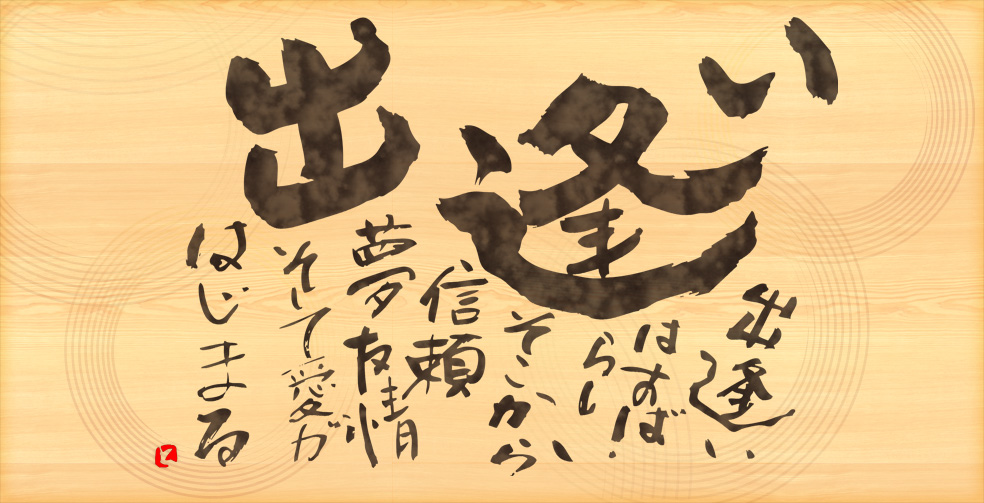 出逢い
出逢い
はすばらしい
そこから
信頼
夢 友情
そして愛が
はじまる